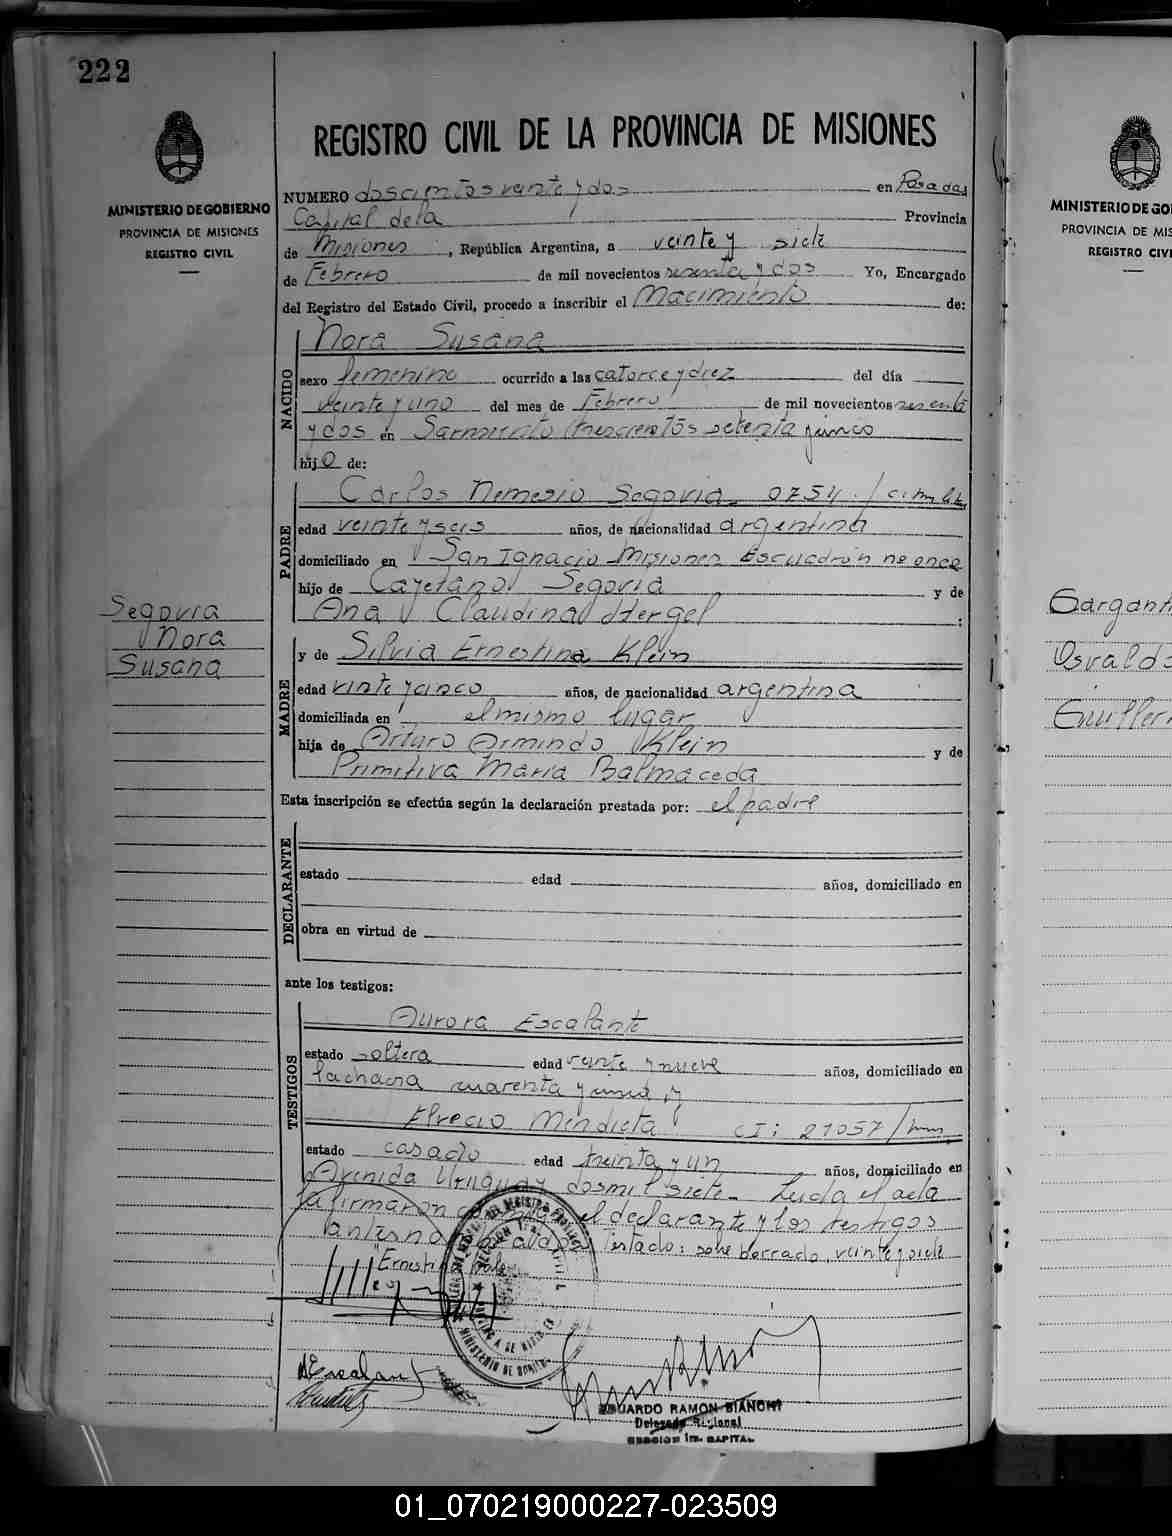 222
MINISTERIO DE GOBIERNO
PROVINCIA DE MISIONES
REGISTRO CIVIL
Segovia
Nora
Susana
REGISTRO CIVIL DE LA PROVINCIA DE MISIONES
NUMERO doscientos veinte y dos en Posadas
Capital de la Provincia
de Misiones, República Argentina, a veinte y siete
de Febrero de mil novecientos sesenta y dos Yo, Encargado
del Registro del Estado Civil, procedo a inscribir el Nacimiento de:
NACIDO
Nora Susana
sexo femenino ocurrido a las catorce y diez del día
veinte y uno del mes de Febrero de mil novecientos sesenta
y dos en Sarmiento trescientos setenta y cinco
hijo de:
PADRE
Carlos Nemesio Segovia 0754
edad veinte y seis años, de nacionalidad argentina
domiciliado en San Ignacio Misiones Escuadrón no once
hijo de Cayetano Segovia y de
Ana Claudina Hergel :
MADRE
y de Silvia Ernestina Klein
edad veinte y cinco años, de nacionalidad argentina
domiciliada en el mismo lugar
hija de Arturo Armindo Klein y de
Primitiva María Balmaceda
Esta inscripción se efectúa según la declaración prestada por: el padre
DECLARANTE
estado edad años, domiciliado en
obra en virtud de
ante los testigos:
TESTIGOS
Aurora Escalante
estado soltera edad veinte y nueve años, domiciliado en
Lachacra cuarenta y
Elpecio Mendieta CI: 21057
estado casado edad treinta y un años, domiciliado en
Avenida Uruguay dos mil siete - Leida el acta
la firmaron el declarante y los testigos
Testado: sobre borrado, veinte y siete
AEscalante
EDUARDO RAMON BIANCHI
Delegado Regional
SECCION 1ra. CAPITAL
MINISTERIO DE GO
PROVINCIA DE MIS
REGISTRO CIVI
Osvaldo
01_070219000227-023509